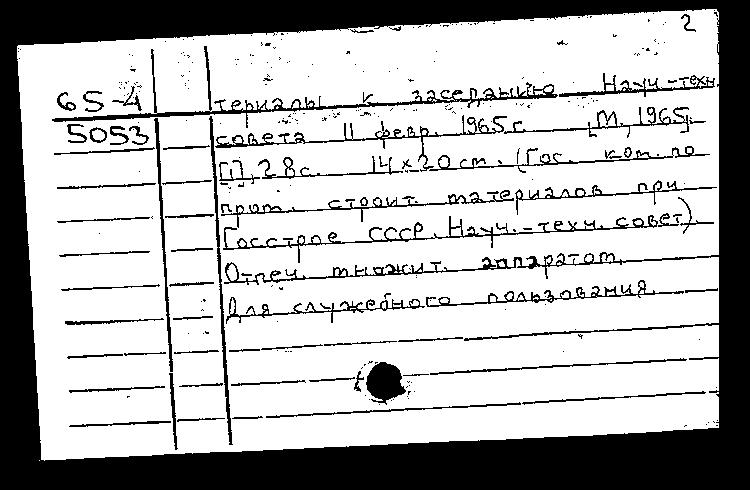 2
65-4 териалы к заседанию Науч.-техн.
5053 совета 11 февр. 1965 г. [М., 1965].
[1], 28 с. 14×20 ст. (Гос. ком. по
пром. строит. материалов при
Госстрое СССР. Науч.-техн. совет).
Отпеч. множит. аппаратом.
Для служебного пользования.